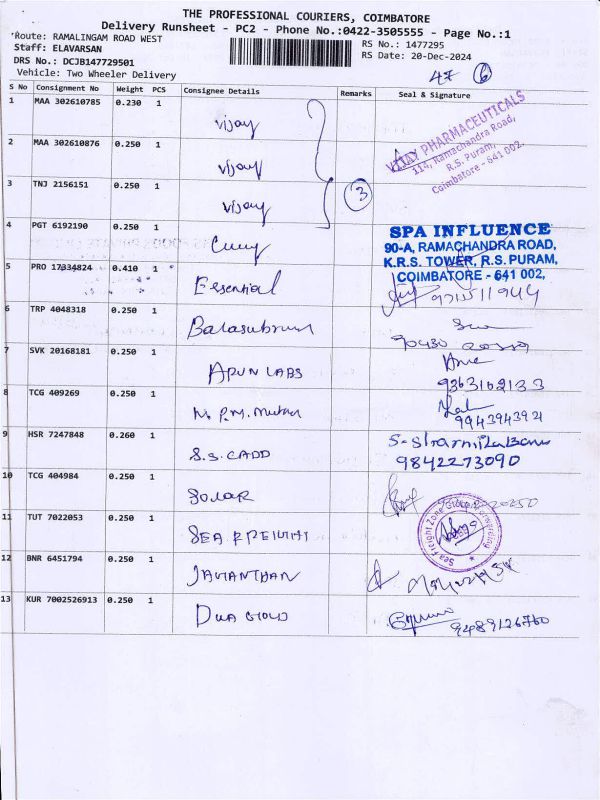 THE PROFESSIONAL COURIERS, COIMBATORE
Delivery Runsheet - PC2 - Phone No.:0422-3505555 - Page No.:1
Route: RAMALINGAM ROAD WEST
RS No.: 1477295
Staff: ELAVARSAN
RS Date: 20-Dec-2024
DRS No.: DCJB147729501
Vehicle: Two Wheeler Delivery
47 6
S No Consignment No Weight PCS Consignee Details Remarks Seal & Signature
1 MAA 302610785 0.230 1 vijay
VIJAY PHARMACEUTICALS
114, Ramachandra Road,
R.S. Puram,
Coimbatore - 641 002.
2 MAA 302610876 0.250 1 vijay
3 TNJ 2156151 0.250 1 vijay 3
4 PGT 6192190 0.250 1
SPA INFLUENCE
90-A, RAMACHANDRA ROAD,
K.R.S. TOWER, R.S. PURAM,
COIMBATORE - 641 002,
5 PRO 17334824 0.410 1 Essential
6 TRP 4048318 0.250 1
7 SVK 20168181 0.250 1 ARUN LABS
9363102133
8 TCG 409269 0.250 1
9943943921
9 HSR 7247848 0.260 1 S.S. CADD
9842273090
10 TCG 404984 0.250 1 Solar
11 TUT 7022053 0.250 1
Sea Freight Zone
12 BNR 6451794 0.250 1
13 KUR 7002526913 0.250 1
9489126760